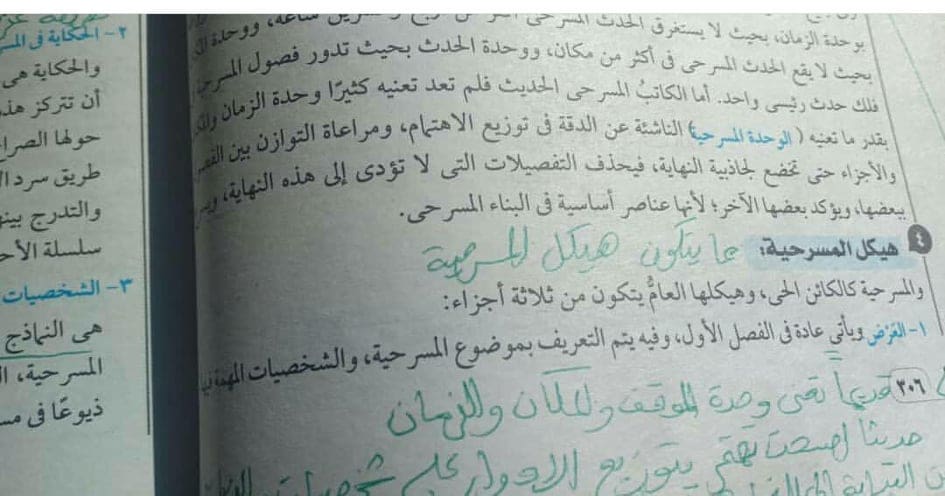 بوحدة الزمان، بحيث لا يستغرق الحدث المسرحى أكثر من ساعة، ووحدة
بحيث لا يقع الحدث المسرحى فى أكثر من مكان، ووحدة الحدث بحيث تدور فصول المسرحية
فلك حدث رئيسى واحد. أما الكاتبُ المسرحى الحديث فلم تعد تعنيه كثيرًا وحدة الزمان
بقدر ما تعنيه ( الوحدة المسرحية) الناشئة عن الدقة فى توزيع الاهتمام، ومراعاة التوازن بين
والأجزاء حتى تخضع لجاذبية النهاية، فيحذف التفصيلات التى لا تؤدى إلى هذه النهاية،
ببعضها، ويؤكد بعضها الآخر؛ لأنها عناصر أساسية فى البناء المسرحى.
٤ هيكل المسرحية: مما يتكون هيكل المسرحية
والمسرحية كالكائن الحى، وهيكلها العامُّ يتكون من ثلاثة أجزاء:
١- العَرْض ويأتى عادة فى الفصل الأول، وفيه يتم التعريف بموضوع المسرحية، والشخصيات المهمة
٣٠٦
قديماً تعنى وحدة الموقف والمكان والزمان
حديثا اصبحت تهتم بتوزيع الادوار على
٢- الحكاية فى
والحكاية هى
أن تتركز
حولها
طريق سرد
والتدرج
سلسلة
٣- الشخصيات
هى النماذج
المسرحية،
ذيوعًا فى